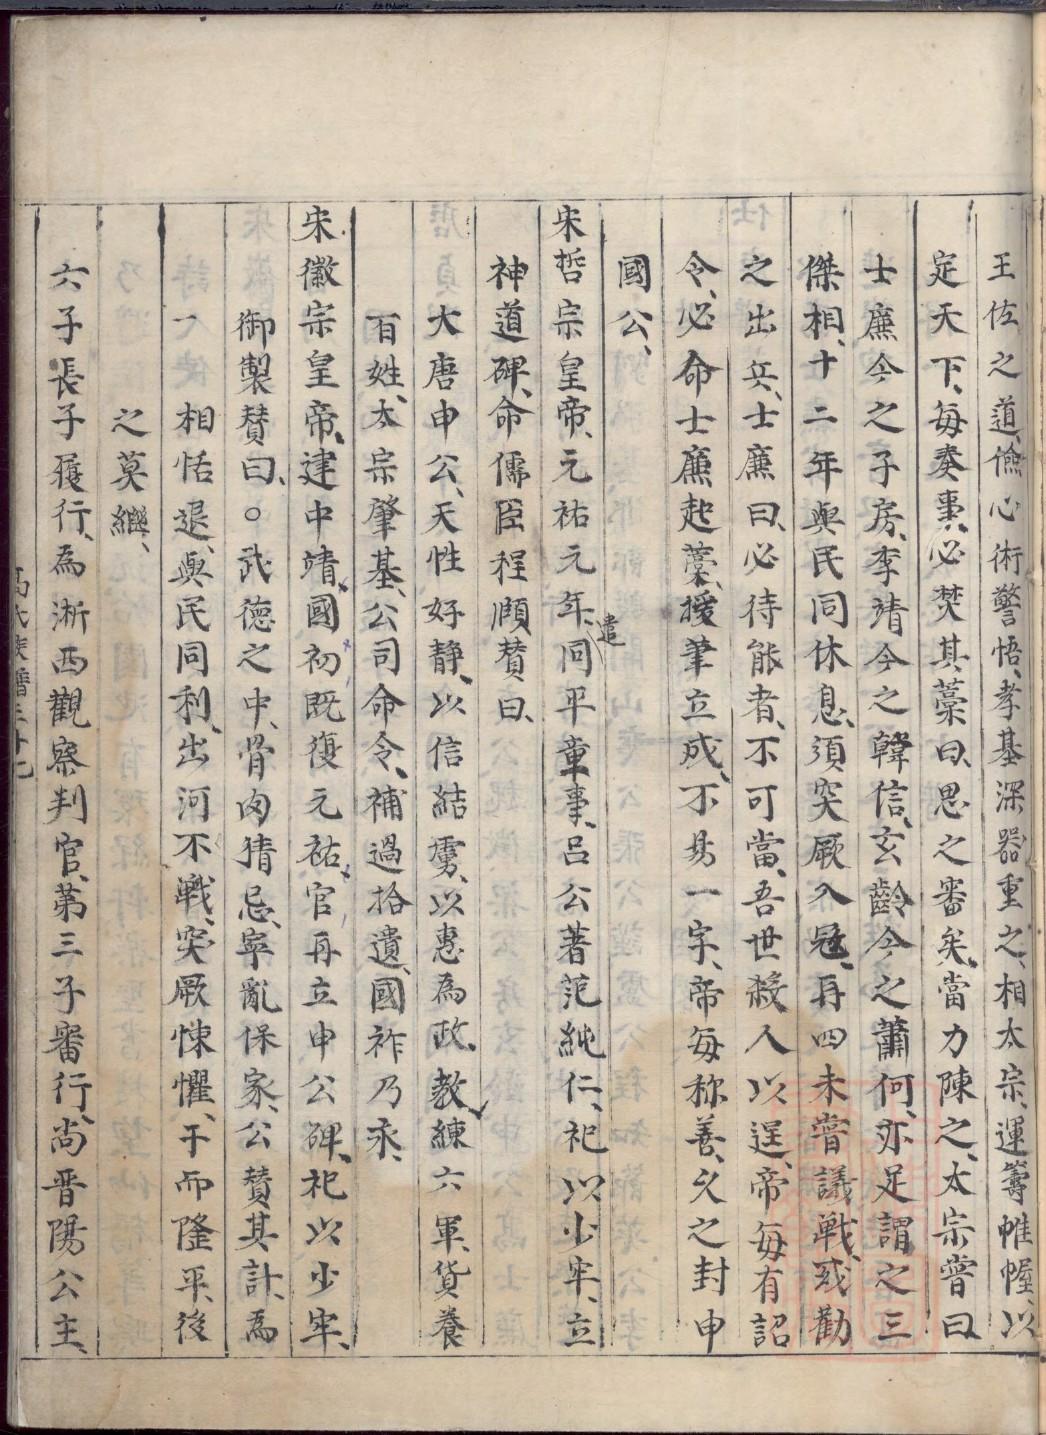 王佐之道、儉心術警悟、孝基深器重之、相太宗、運籌帷幄、以
定天下、每奏事、必焚其藁曰、思之審矣、當力陳之、太宗嘗曰
士廉今之子房、李靖今之韓信、玄齡今之蕭何、亦足謂之三
傑相、十二年與民同休息、須突厥入冦、再四未嘗議戰、或勸
之出兵、士廉曰、必待能者、不可當、吾世殺人以逞、帝每有詔
令、必命士廉起藁、援筆立成、不易一字、帝每称善、久之封申
國公、
宋哲宗皇帝、元祐元年、遣同平章事、呂公著范純仁、祀以少牢、立
神道碑、命儒臣程頤賛曰、
大唐申公、天性好静、以信結虜、以惠為政、教練六軍、貨養
百姓、太宗肇基、公司命令、補過拾遺、國祚乃永、
宋徽宗皇帝、建中靖國初、既復元祐、官再立申公碑、祀以少牢、
御製賛曰、○武德之中、骨肉猜忌、寧亂保家、公賛其計、為
一相恬退、與民同利、出河不戰、突厥悚懼、干而隆平、後
之莫繼、
六子長子履行、為浙西觀察判官、第三子審行、尚晋陽公主、
高氏族譜